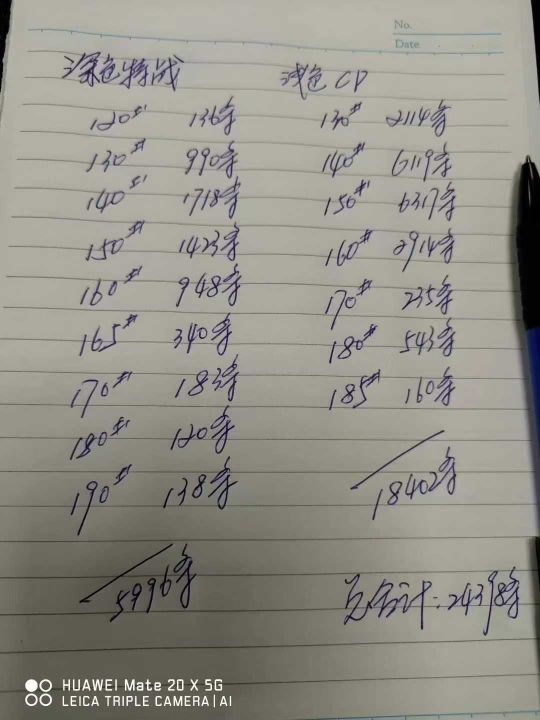 No.
Date
深色特战
120# 136条
130# 990条
140# 1718条
150# 1423条
160# 948条
165# 340条
170# 183条
180# 120条
190# 138条
5996条
浅色CP
130# 2114条
140# 6119条
150# 6317条
160# 2914条
170# 235条
180# 543条
185# 160条
18402条
总合计:24398条
HUAWEI Mate 20 X 5G
LEICA TRIPLE CAMERA | AI